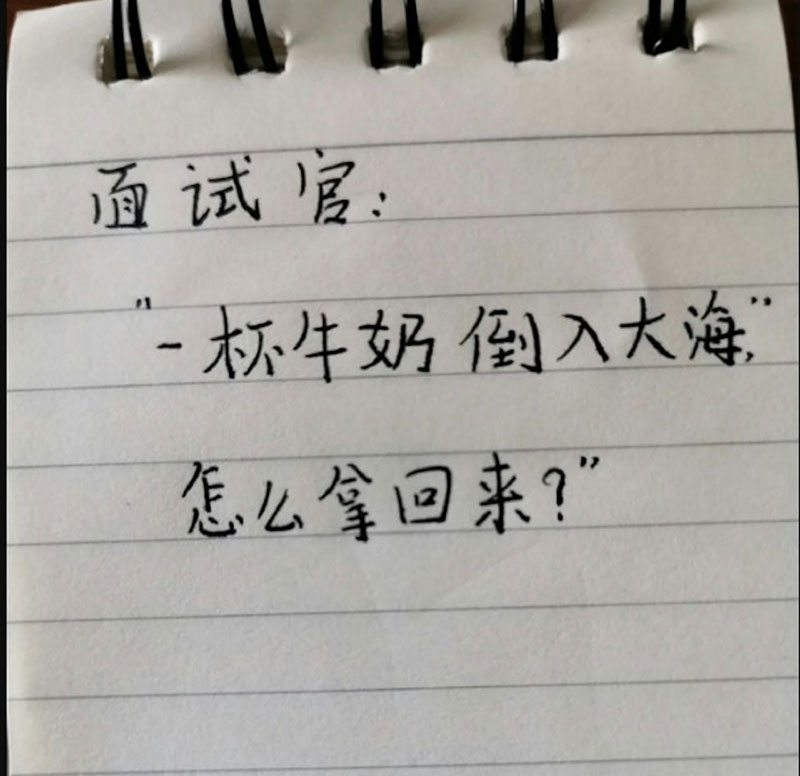 面试官：
"一杯牛奶倒入大海，"
怎么拿回来？"